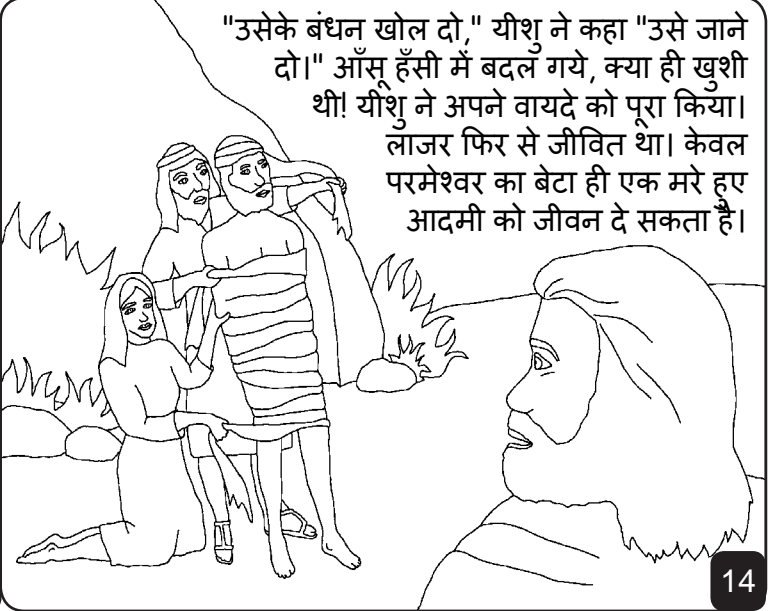 "उसेके बंधन खोल दो," यीशु ने कहा "उसे जाने
दो।" आँसू हँसी में बदल गये, क्या ही खुशी
थी! यीशु ने अपने वायदे को पूरा किया।
लाजर फिर से जीवित था। केवल
परमेश्वर का बेटा ही एक मरे हुए
आदमी को जीवन दे सकता है।
14